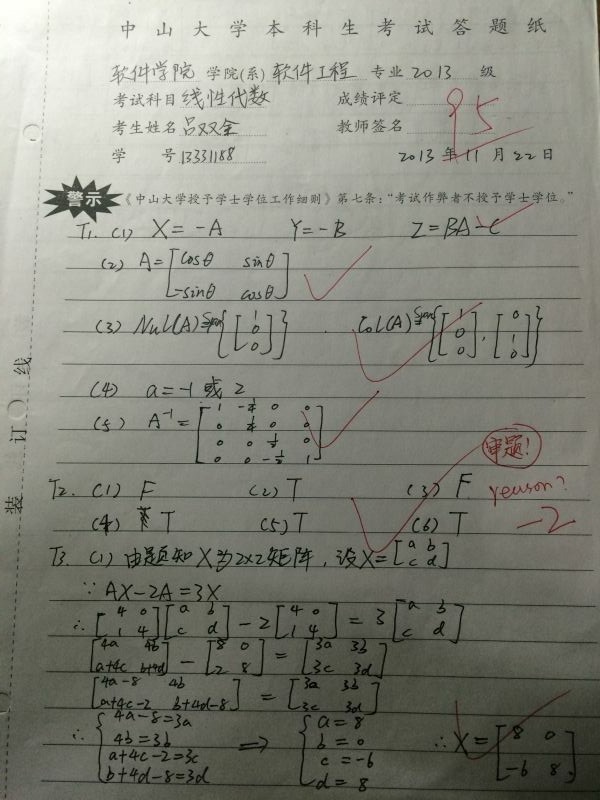 中山大学本科生考试答题纸
软件学院 学院(系) 软件工程 专业 2013 级
考试科目 线性代数 成绩评定 95
考生姓名 吕双全 教师签名
学 号 13331188 2013 年 11 月 22 日
警示 《中山大学授予学士学位工作细则》第七条:“考试作弊者不授予学士学位。”
T1. (1) X = -A Y = -B Z = BA - C
(2) A = [cosθ sinθ
-sinθ cosθ]
(3) Nul(A) = Span{[1 0 0]} Col(A) = Span{[1 0 0], [0 1 0]}
(4) a = -1 或 2
(5) A⁻¹ = [1 -1/4 0 0
0 1/4 0 0
0 0 1/2 0
0 0 -1/2 1]
审题!
T2. (1) F (2) T (3) F reason?
(4) T (5) T (6) T -2
T3 (1) 由题知 X 为 2×2 矩阵, 设 X = [a b
c d]
∵ AX - 2A = 3X
∴ [4 0
1 4][a b
c d] - 2[4 0
1 4] = 3[a b
c d]
[4a 4b
a+4c b+4d] - [8 0
2 8] = [3a 3b
3c 3d]
[4a-8 4b
a+4c-2 b+4d-8] = [3a 3b
3c 3d]
∴ {4a-8=3a ⟹ {a=8
4b=3b b=0 ∴ X = [8 0
a+4c-2=3c c=-6 -6 8]
b+4d-8=3d d=8
装 订 线